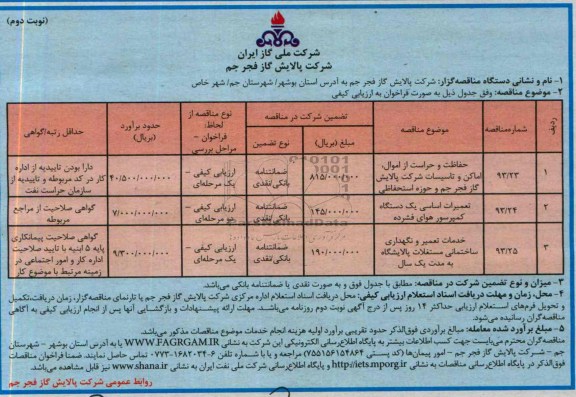 (نوبت دوم)
شرکت ملی گاز ایران
شرکت پالایش گاز فجر جم
۱- نام و نشانی دستگاه مناقصه‌گزار: شرکت پالایش گاز فجر جم به آدرس استان بوشهر/ شهرستان جم/ شهر خاص
۲- موضوع مناقصه: وفق جدول ذیل به صورت فراخوان به ارزیابی کیفی
ردیف | شماره‌مناقصه | موضوع مناقصه | تضمین شرکت در مناقصه | مبلغ (ریال) | نوع تضمین | نوع مناقصه از لحاظ: فراخوان – مراحل بررسی | حدود برآورد (ریال) | حداقل رتبه/گواهی
۱ | ۹۳/۲۳ | حفاظت و حراست از اموال، اماکن و تاسیسات شرکت پالایش گاز فجر جم و حوزه استحفاظی | ۸۱۵/۰۰۰/۰۰۰ | ضمانتنامه بانکی/نقدی | ارزیابی کیفی – یک مرحله‌ای | ۴۰/۵۰۰/۰۰۰/۰۰۰ | دارا بودن تاییدیه از اداره کار در کد مربوطه و تاییدیه از سازمان حراست نفت
۲ | ۹۳/۲۴ | تعمیرات اساسی یک دستگاه کمپرسور هوای فشرده | ۱۴۵/۰۰۰/۰۰۰ | ضمانتنامه بانکی/نقدی | ارزیابی کیفی – دو مرحله‌ای | ۷/۰۰۰/۰۰۰/۰۰۰ | گواهی صلاحیت از مراجع مربوطه
۳ | ۹۳/۲۵ | خدمات تعمیر و نگهداری ساختمانی مستغلات پالایشگاه به مدت یک سال | ۱۹۰/۰۰۰/۰۰۰ | ضمانتنامه بانکی/نقدی | ارزیابی کیفی – یک مرحله‌ای | ۹/۳۰۰/۰۰۰/۰۰۰ | گواهی صلاحیت پیمانکاری پایه ۵ ابنیه با تایید صلاحیت اداره کار و امور اجتماعی در زمینه مرتبط با موضوع کار
۳- میزان و نوع تضمین شرکت در مناقصه: مطابق با جدول فوق و به صورت نقدی یا ضمانتنامه بانکی می‌باشد.
۴- محل، زمان و مهلت دریافت اسناد استعلام ارزیابی کیفی: محل دریافت اسناد استعلام اداره مرکزی شرکت پالایش گاز فجر جم یا تارنمای مناقصه‌گزار، زمان دریافت،تکمیل
و تحویل فرم‌های استعلام ارزیابی حداکثر ۱۴ روز پس از درج آگهی نوبت دوم روزنامه می‌باشند. مهلت ارائه پیشنهادات و بازگشایی آنها پس از انجام ارزیابی کیفی به آگاهی
مناقصه‌گران رسانیده می‌شود.
۵- مبلغ برآورد شده معامله: مبالغ برآوردی فوق‌الذکر حدود تقریبی برآورد اولیه هزینه انجام خدمات موضوع مناقصات مذکور می‌باشد.
مناقصه‌گران محترم می‌بایست جهت کسب اطلاعات بیشتر به پایگاه اطلاع‌رسانی الکترونیکی این شرکت به نشانی WWW.FAGRGAM.IR یا به آدرس استان بوشهر – شهرستان
جم – شرکت پالایش گاز فجر جم – امور پیمان‌ها (کد پستی ۷۵۵۱۵۶۱۵۴۸۶۴) مراجعه و یا با شماره تلفن ۰۷۷۳-۱۶۸۲۰۳۴-۶ تماس حاصل نمایند. ضمنا فراخوان مناقصات
فوق‌الذکر در پایگاه اطلاع‌رسانی مناقصات به نشانی http://iets.mporg.ir و پایگاه اطلاع‌رسانی شرکت ملی نفت ایران به نشانی www.shana.ir نیز قابل مشاهده می‌باشد.
روابط عمومی شرکت پالایش گاز فجر جم